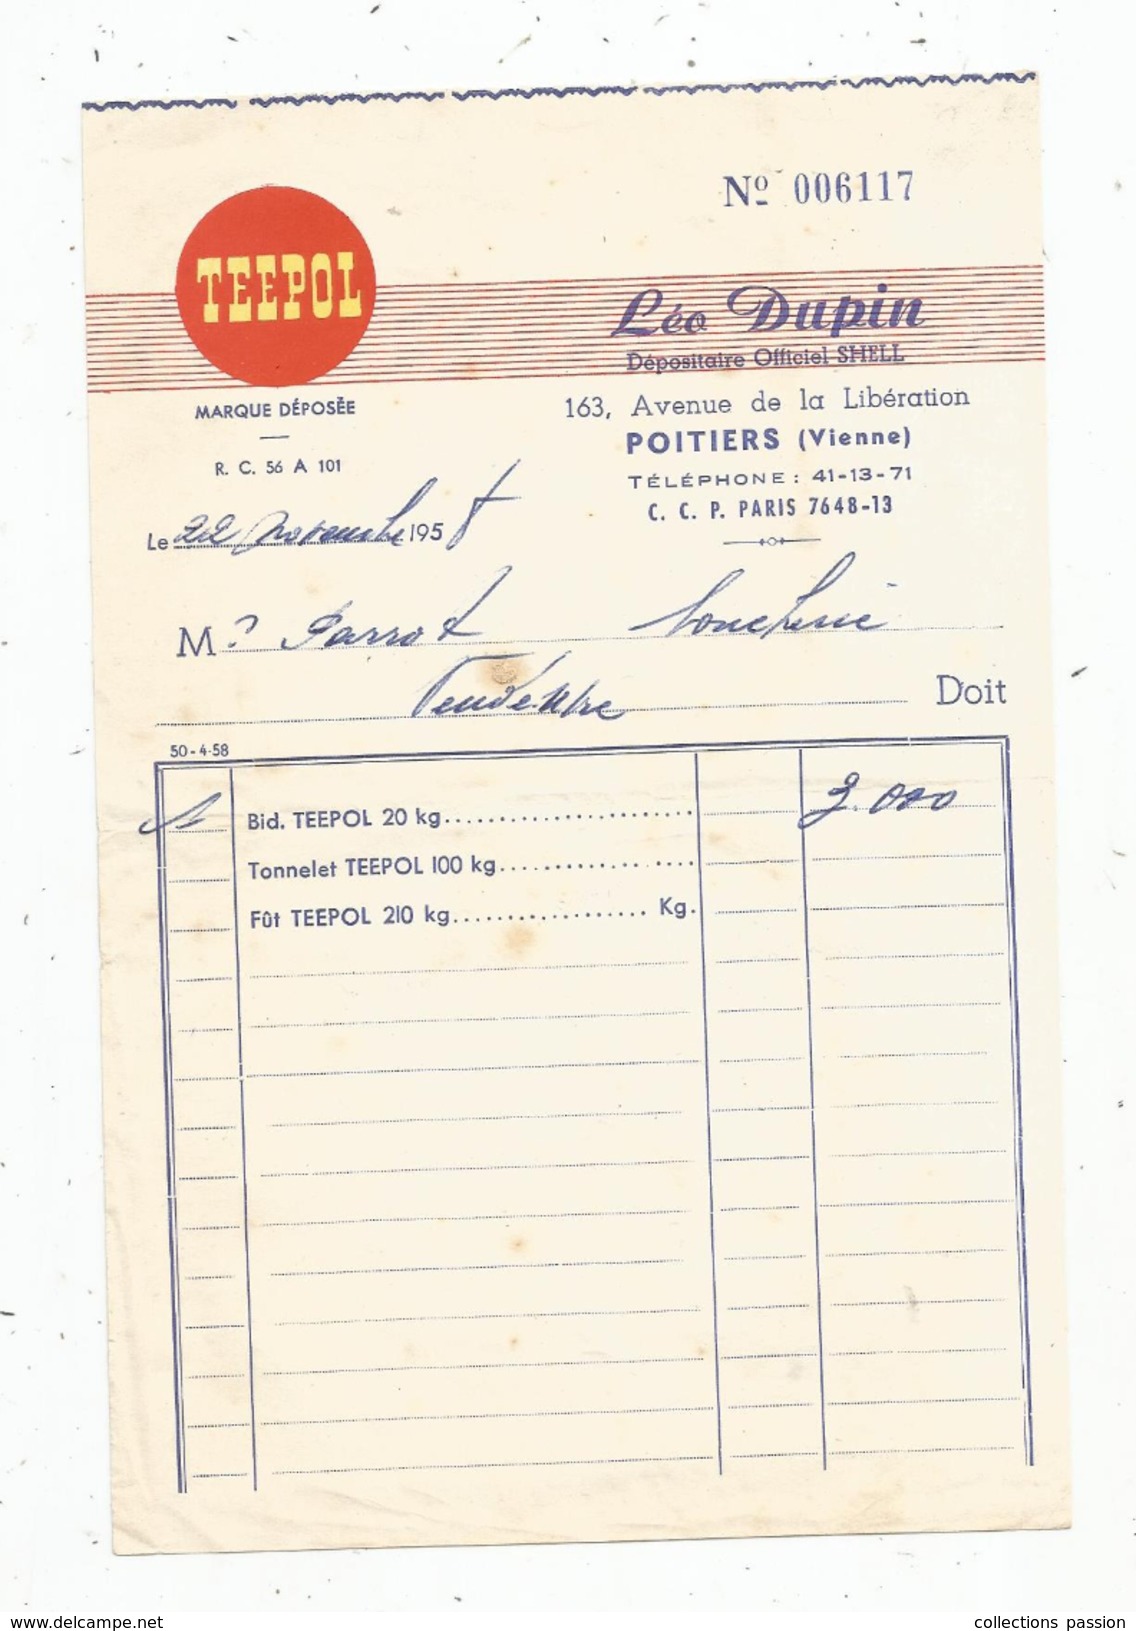 Nº 006117
TEEPOL
Léo Dupin
Dépositaire Officiel SHELL
MARQUE DÉPOSÉE
R. C. 56 A 101
163, Avenue de la Libération
POITIERS (Vienne)
TÉLÉPHONE : 41-13-71
C. C. P. PARIS 7648-13
Le 22 novembre 1958
M. Parrot
Doit
50-4-58
1 Bid. TEEPOL 20 kg
Tonnelet TEEPOL 100 kg
Fût TEEPOL 210 kg Kg.
http://www.delcampe.net
collections passion